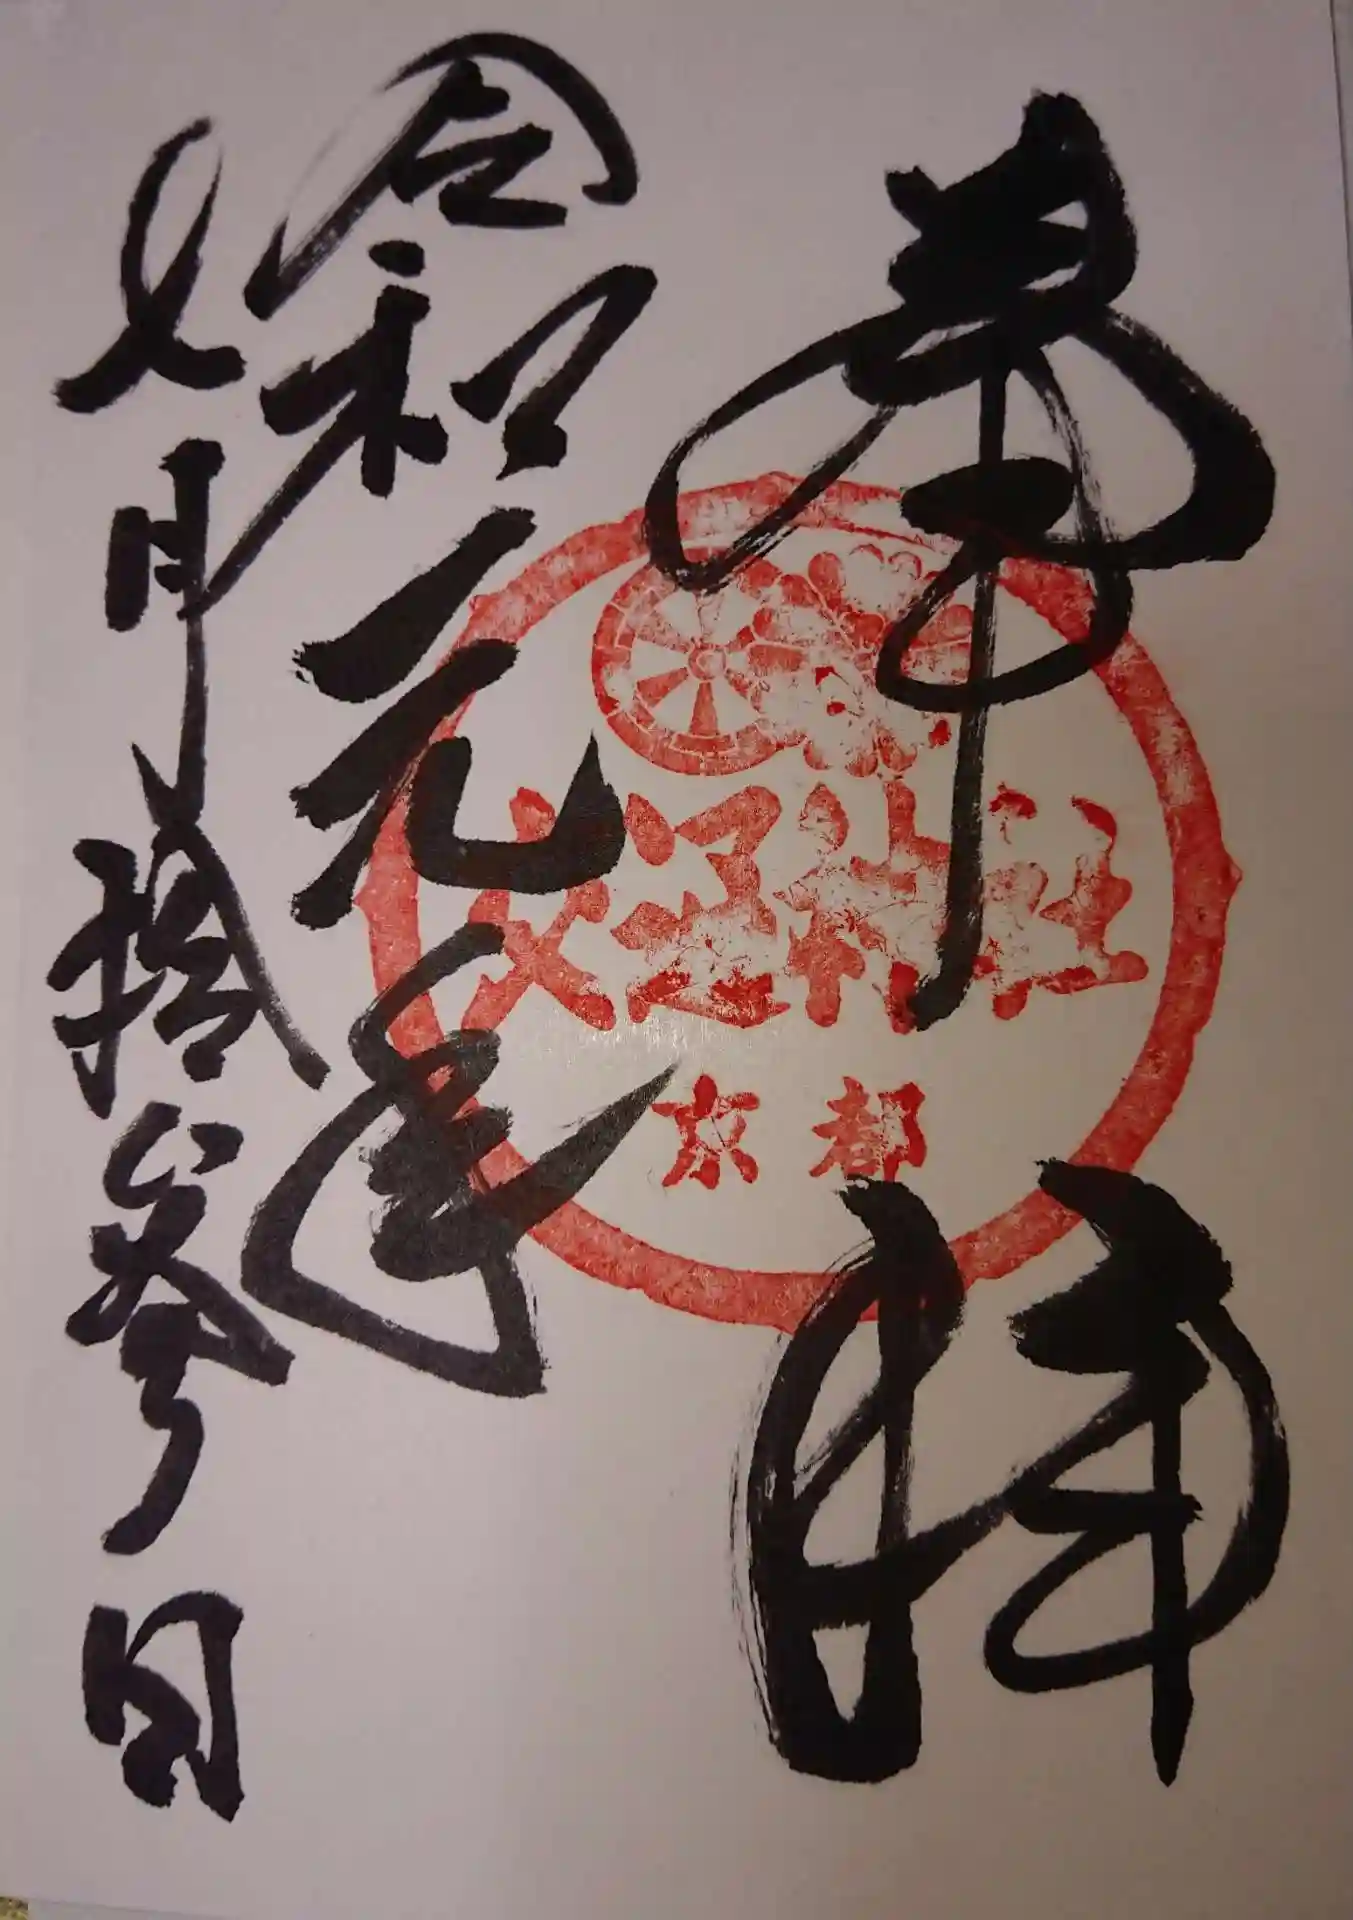 奉拝
神社
京都
令和元年
七月拾参日